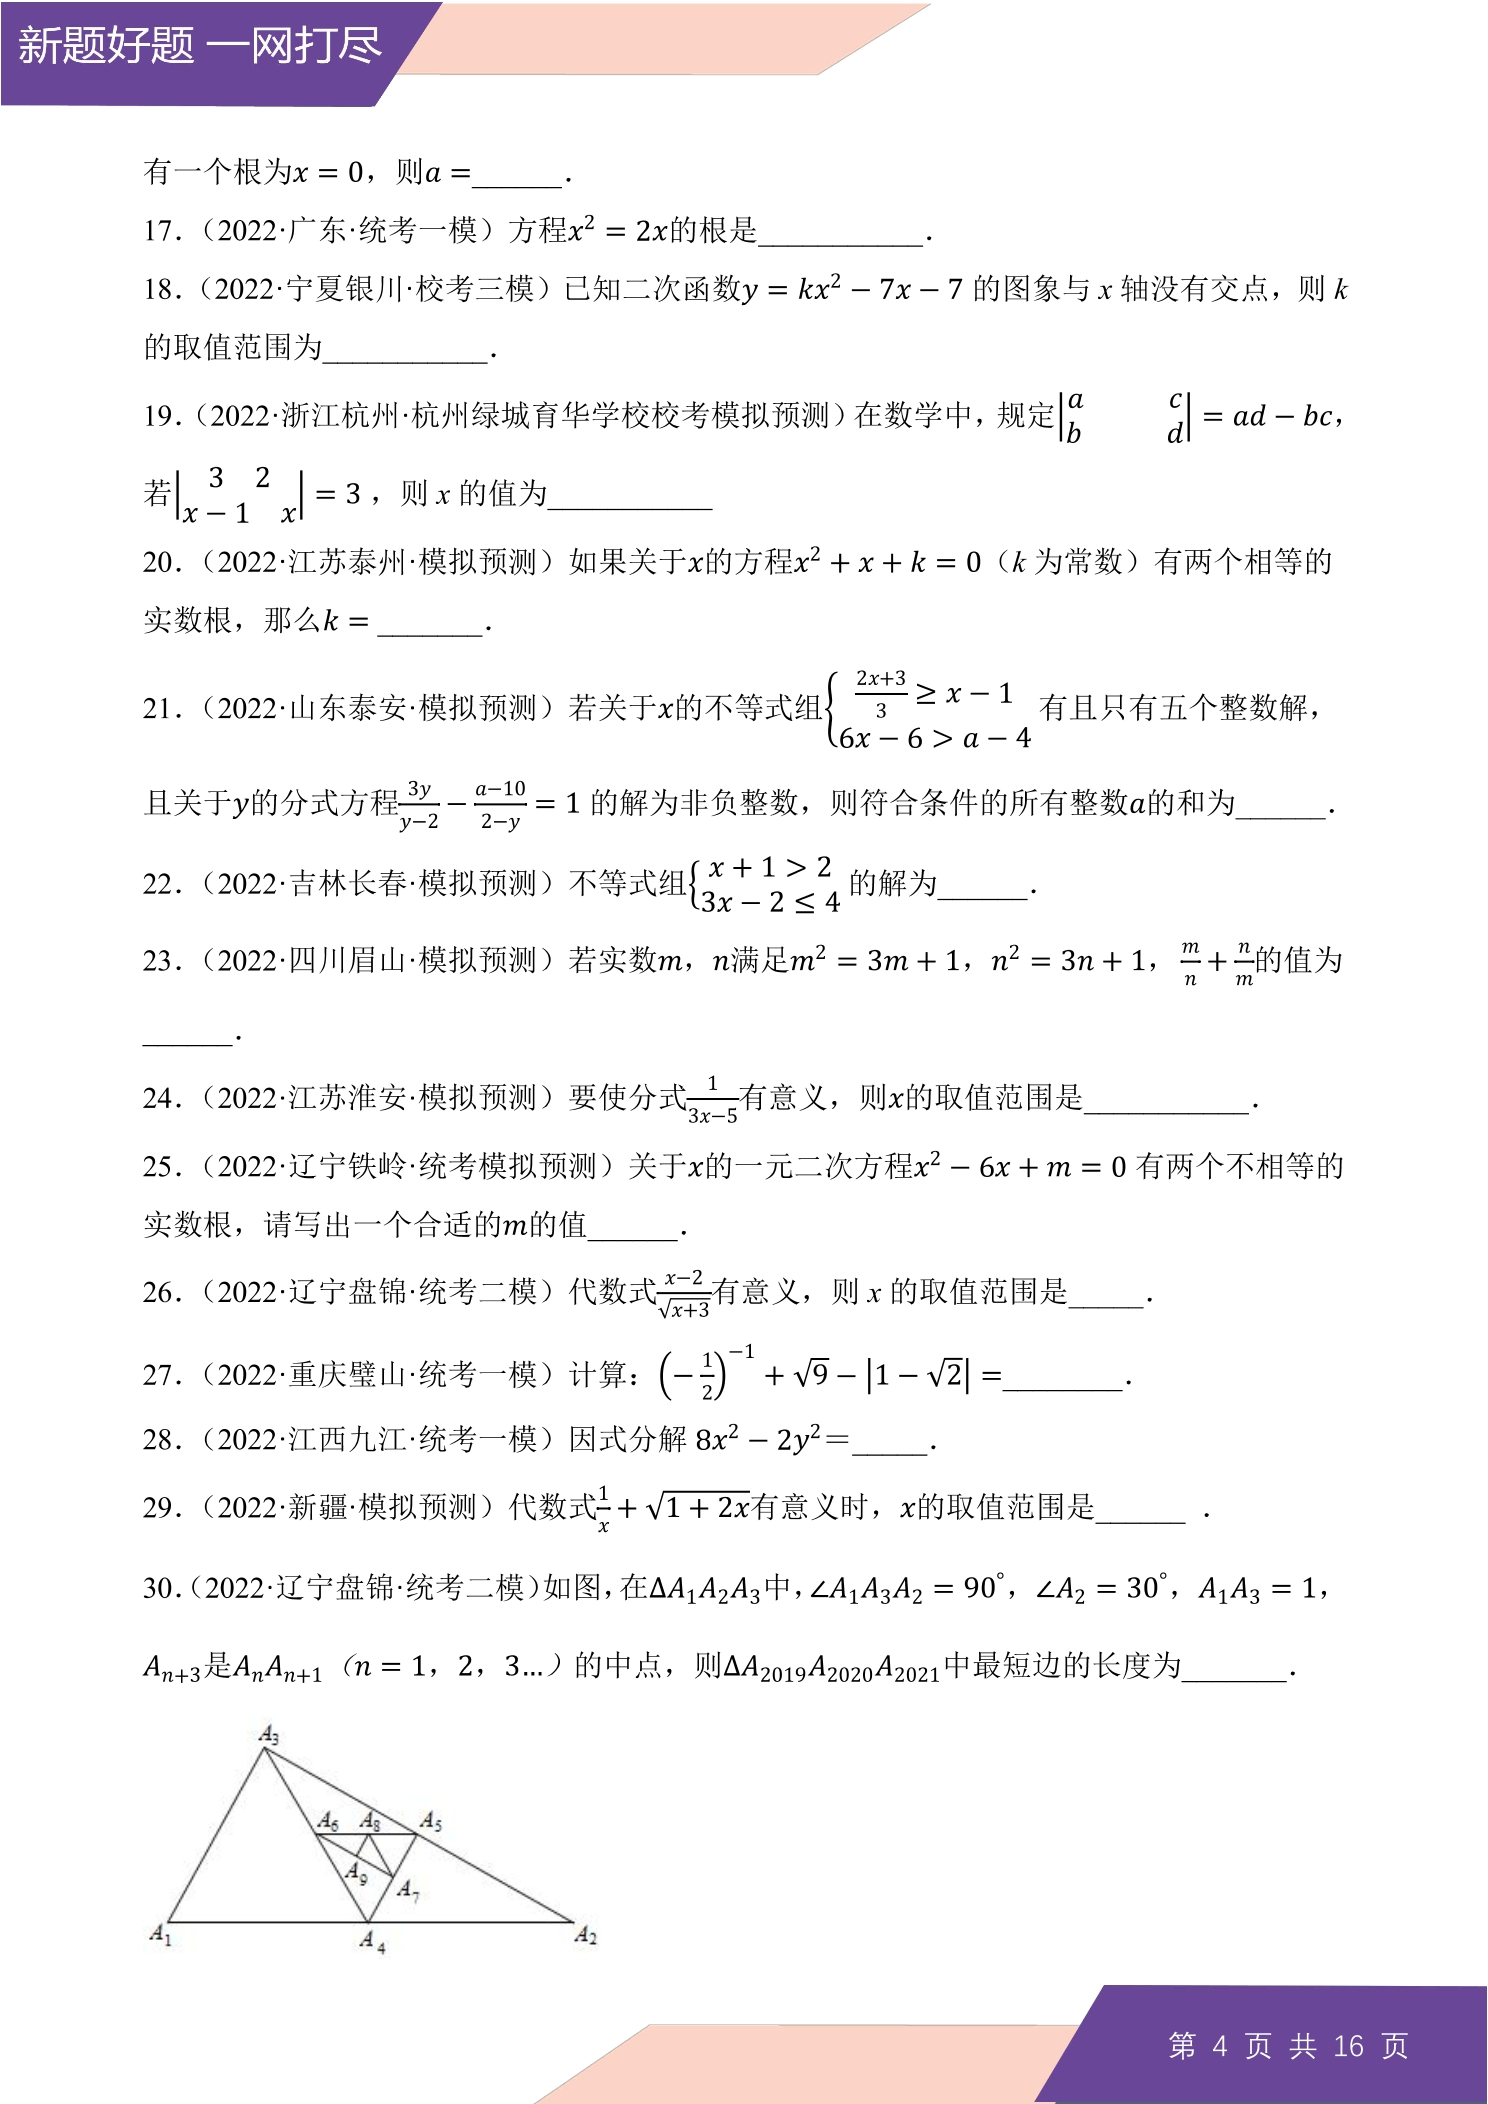 新题好题 一网打尽
有一个根为x = 0，则a =______．
17．（2022·广东·统考一模）方程x² = 2x的根是___________．
18．（2022·宁夏银川·校考三模）已知二次函数y = kx² − 7x − 7 的图象与 x 轴没有交点，则 k
的取值范围为___________．
19．（2022·浙江杭州·杭州绿城育华学校校考模拟预测）在数学中，规定|a c; b d| = ad − bc，
若|3 2; x − 1 x| = 3 ，则 x 的值为___________
20．（2022·江苏泰州·模拟预测）如果关于x的方程x² + x + k = 0（k 为常数）有两个相等的
实数根，那么k = _______．
21．（2022·山东泰安·模拟预测）若关于x的不等式组{(2x+3)/3 ≥ x − 1; 6x − 6 > a − 4 有且只有五个整数解，
且关于y的分式方程3y/(y−2) − (a−10)/(2−y) = 1 的解为非负整数，则符合条件的所有整数a的和为______．
22．（2022·吉林长春·模拟预测）不等式组{x + 1 > 2; 3x − 2 ≤ 4 的解为______．
23．（2022·四川眉山·模拟预测）若实数m，n满足m² = 3m + 1，n² = 3n + 1， m/n + n/m的值为
______．
24．（2022·江苏淮安·模拟预测）要使分式1/(3x−5)有意义，则x的取值范围是___________．
25．（2022·辽宁铁岭·统考模拟预测）关于x的一元二次方程x² − 6x + m = 0 有两个不相等的
实数根，请写出一个合适的m的值______．
26．（2022·辽宁盘锦·统考二模）代数式(x−2)/√(x+3)有意义，则 x 的取值范围是_____．
27．（2022·重庆璧山·统考一模）计算：(−1/2)⁻¹ + √9 − |1 − √2| =________．
28．（2022·江西九江·统考一模）因式分解 8x² − 2y²＝_____．
29．（2022·新疆·模拟预测）代数式1/x + √(1 + 2x)有意义时，x的取值范围是______ ．
30．（2022·辽宁盘锦·统考二模）如图，在ΔA₁A₂A₃中，∠A₁A₃A₂ = 90°，∠A₂ = 30°，A₁A₃ = 1，
Aₙ₊₃是AₙAₙ₊₁（n = 1，2，3…）的中点，则ΔA₂₀₁₉A₂₀₂₀A₂₀₂₁中最短边的长度为_______．
A₃
A₆ A₈ A₅
A₉
A₇
A₁ A₄ A₂
第 4 页 共 16 页